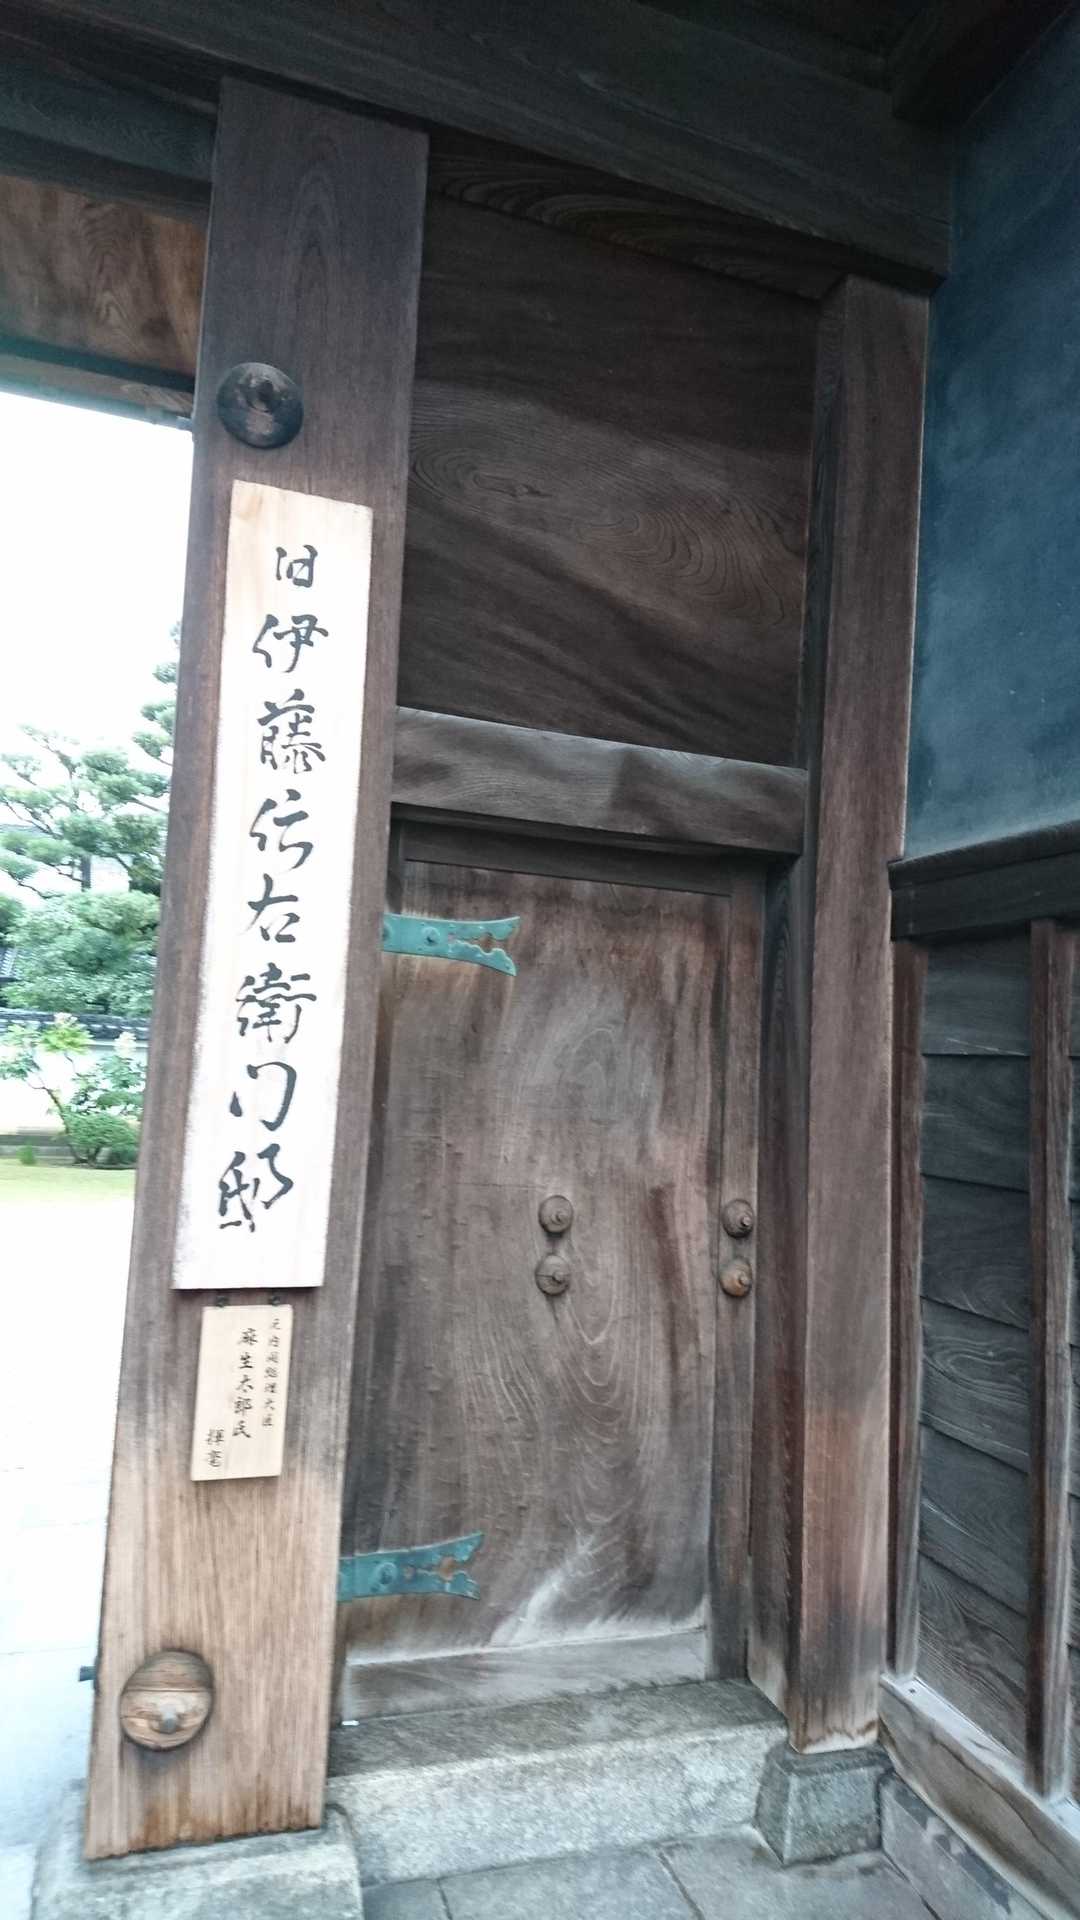 旧伊藤伝右衛門邸
元内閣総理大臣
麻生太郎氏
揮毫